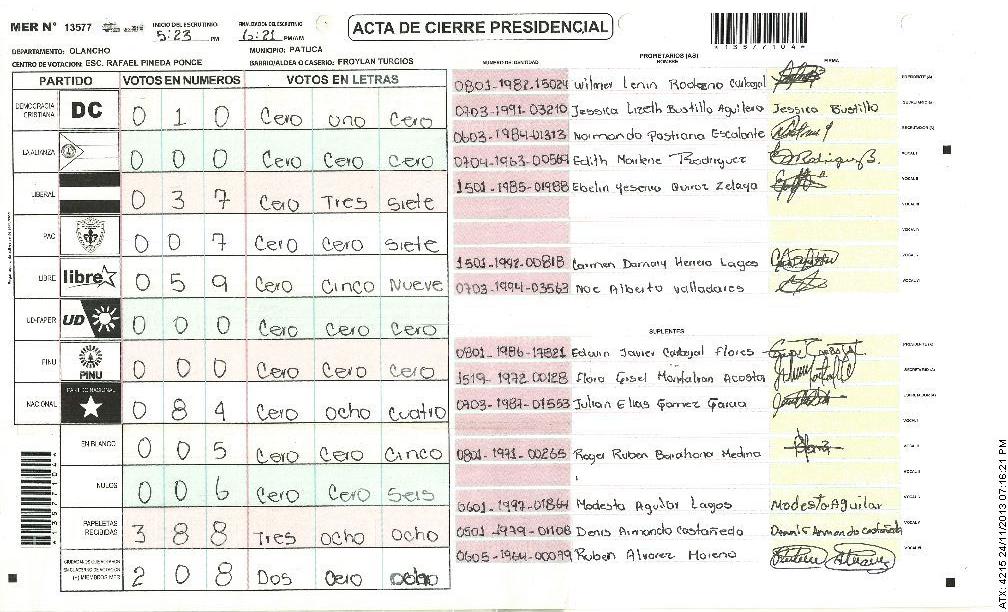 MER N° 13577
INICIO DEL ESCRUTINIO 5:23 PM
FINALIZACION DEL ESCRUTINIO 6:21 PM/AM
ACTA DE CIERRE PRESIDENCIAL
*13577104*
DEPARTAMENTO: OLANCHO MUNICIPIO: PATUCA
CENTRO DE VOTACION: ESC. RAFAEL PINEDA PONCE BARRIO/ALDEA O CASERIO: FROYLAN TURCIOS
PARTIDO VOTOS EN NUMEROS VOTOS EN LETRAS
DEMOCRACIA CRISTIANA DC 0 1 0 Cero uno Cero
LA ALIANZA 0 0 0 Cero Cero Cero
LIBERAL 0 3 7 Cero Tres Siete
PAC 0 0 7 Cero Cero Siete
LIBRE libre 0 5 9 Cero Cinco Nueve
UD-FAPER UD 0 0 0 Cero Cero Cero
PINU PINU 0 0 0 Cero Cero Cero
NACIONAL PARTIDO NACIONAL 0 8 4 Cero Ocho Cuatro
EN BLANCO 0 0 5 Cero Cero Cinco
NULOS 0 0 6 Cero Cero Seis
PAPELETAS RECIBIDAS 3 8 8 Tres Ocho Ocho
(+) MIEMBROS MER 2 0 8 Dos Cero Ocho
NUMERO DE IDENTIDAD PROPIETARIOS (AS) NOMBRE FIRMA
0801-1982-15024 Wilmer Lenin Rodezno Carbajal
0703-1991-03210 Jessica Lizeth Bustillo Aguilera Jessica Bustillo
0603-1984-01313 Normando Pastrana Escalante
0704-1963-00569 Edith Marlene Rodriguez
1501-1985-01988 Ebelin Yesenia Quiroz Zelaya
1501-1992-00818 Carmen Damary Herrera Lagos
0703-1994-03563 Noe Alberto Valladares
SUPLENTES
0801-1986-17821 Edwin Javier Carbajal Flores
1519-1972-00128 Flora Gisel Monfalvan Acosta
0703-1987-01553 Julian Elias Gomez Garcia
0801-1971-00265 Roger Ruben Barahona Medina
0601-1997-01864 Modesta Aguilar Lagos Modesta Aguilar
0501-1979-01108 Denis Armando Castañeda Denis Armando Castañeda
0605-1964-00099 Ruben Alvarez Moreno
*13577104*
ATX: 4215 24/11/2013 07:16:21 PM